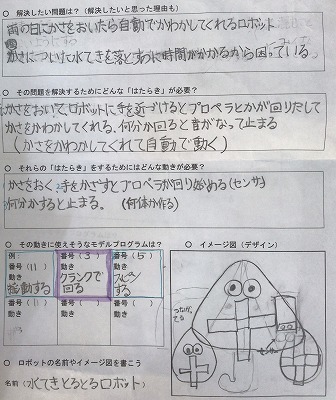 ○ 解決したい問題は？（解決したいと思った理由も）
雨の日にかさをおいたら自動でかわかしてくれるロボット
かさについた水てきを落とすのに時間がかかるから困っている
○ その問題を解決するためにどんな「はたらき」が必要？
かさをおいて、ロボットに手を近づけるとプロペラとかが回りだして
かさをかわかしてくれる、何分か回ると音がなって止まる
（かさをかわかしてくれて自動で動く）
○ それらの「はたらき」をするためにはどんな動きが必要？
かさをおく、手をかざすとプロペラが回り始める（センサ）
何分かすると止まる。 （何体か作る）
○ その動きに使えそうなモデルプログラムは？
例：
番号（11）
動き
移動する
番号（3）
動き
クランクで
回る
番号（5）
動き
スピン
する
番号（11）
動き
番号（ ）
動き
番号（ ）
動き
○ イメージ図（デザイン）
つながってる
センサー
○ ロボットの名前やイメージ図を書こう
名前（水てきとるとるロボット）